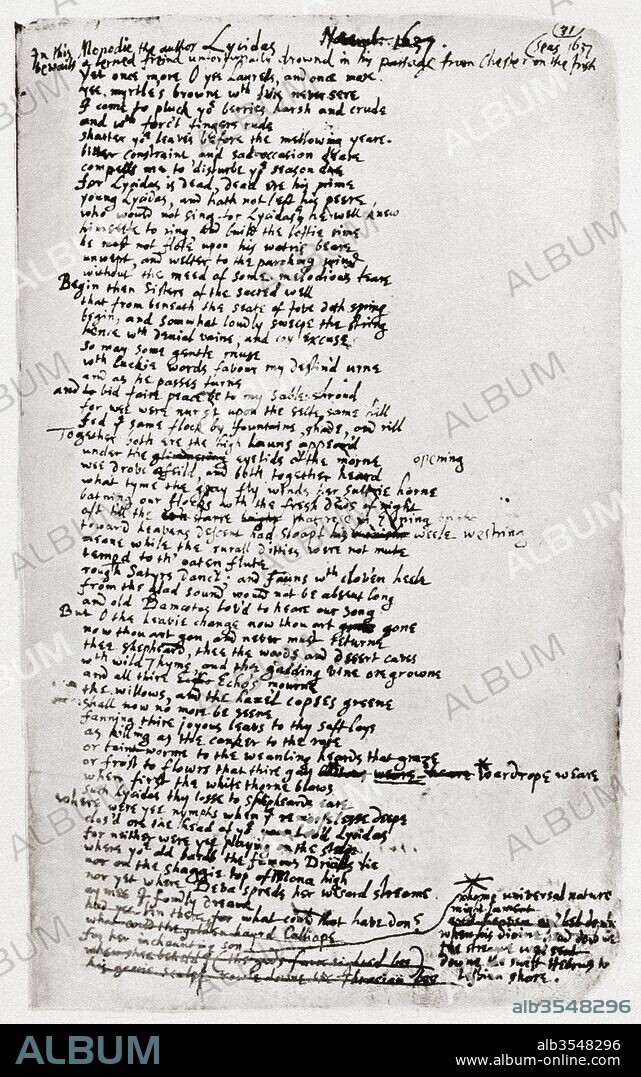 Lycidas
Novemb: 1637.
(31
In this Monodie the author bewails a lerned freind unfortunatly drownd in his passage from Chester on the Irish seas 1637
Yet once more O ye Laurels, and once more
yee myrtle's browne wth Ivie never sere
I come to pluck yor berries harsh and crude
and wth forc't fingers rude
shatter yor leaves before the mellowing yeare.
bitter constraint, and sad occasion deare
compells me to disturbe yor season due
for Lycidas is dead, dead ere his prime
young Lycidas, and hath not left his peere
who would not sing for Lycidas he well knew
himselfe to sing and build the loftie rime
he must not flote upon his watrie beare
unwept, and welter to the parching wind
without the meed of some melodious teare
Begin then Sisters of the sacred well
that from beneath the seate of Jove doth spring
begin, and somwhat loudly sweepe the string
hence wth denial vaine, and coy excuse
so may some gentle muse
wth luckie words favour my destin'd urne
and as he passes turne
and to bid faire peace be to my sable shroud
for wee were nurst upon the selfe same hill
fed ye same flock by fountaine, shade, and rill
Together both ere the high launs appear'd
under the glimmering eyelids of the morne opening
wee drove afeild, and both together heard
what tyme the gray fly winds her sultrie horne
batning our flocks with the fresh dews of night
oft till the starre
toward heavens descent had sloapt his weele westring
meane while the rurall ditties were not mute
temper'd to th' oaten flute
rough Satyrs danc't, and Fauns wth cloven heele
from the glad sound would not be absent long
and old Damoetas lov'd to heare our song
But O the heavie change now thou art gone
now thou art gon, and never must returne
thee shepheard, thee the woods and desert caves
wth wild Thyme, and the gadding vine oregrowne
and all thire Echos mourne
the willows, and the hazel copses greene
shall now no more be seene
fanning thire joyous leavs to thy soft lays
as killing as the canker to the rose
or taint-worme to the weanling heards that graze
or frost to flowrs that thire gay wardrope weare
when first the white thorne blows
such Lycidas thy losse to shepheards eare
where were yee nymphs when ye remorslesse deepe
clos'd ore the head of yor young lov'd Lycidas
for neither were yee playing on the steepe
where yor old bards the famous Druids lie
nor on the shaggie top of Mona high
nor yet where Deva spreds her wisard streame
ay mee I fondly dreame
had yee bin there, for what could that have don?
what could the golden hayrd Calliope
for her inchaunting son
*whome universal nature
might lament
when his divine head downe
the streame was sent
downe the swift Hebrus to
Lesbian shore.
ALBUM
alb3548296
ALBUM
alb3548296
www.album-online.com